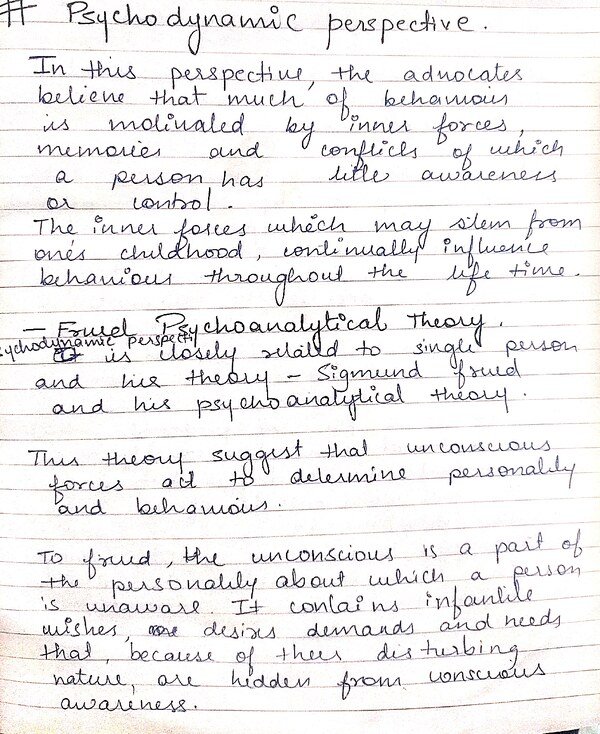 # Psychodynamic perspective.
In this perspective, the advocates
believe that much of behaviour
is motivated by inner forces,
memories and conflicts of which
a person has little awareness
or control.
The inner forces which may stem from
one's childhood, continually influence
behaviour throughout the life time.
- Frued Psychoanalytical Theory.
Psychodynamic perspective
is closely related to single person
and his theory - Sigmund frued
and his psychoanalytical theory.
This theory suggest that unconscious
forces act to determine personality
and behaviour.
To frued, the unconscious is a part of
the personality about which a person
is unaware. It contains infantile
wishes, desires demands and needs
that, because of their disturbing
nature, are hidden from conscious
awareness.